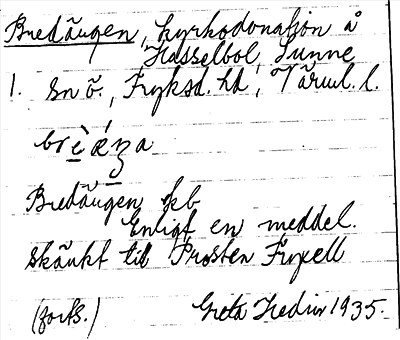 Bredängen, kyrkodonation å
Hasselbol, Sunne
1. sn ö., Fryksd. hd, Värml. l.
Bredängen, ekb
Enligt en meddel.
skänkt till Prosten Fryxell
(forts.) Greta Hedin 1935.